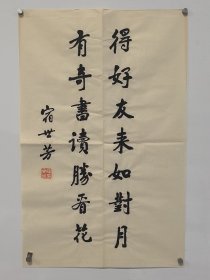 得好友来如對月
有奇書讀勝看花
宿世芳